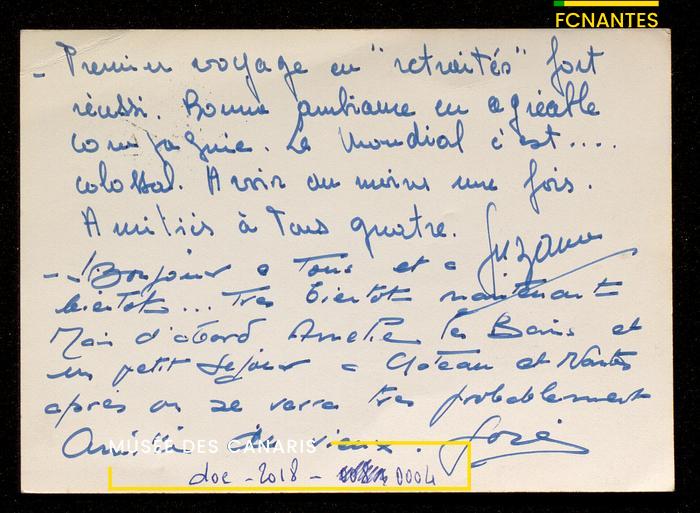 FCNANTES
- Premier voyage en "retraités" fort
réussi. Bonne ambiance en agréable
compagnie. Le Mondial c'est....
colossal. A voir au moins une fois.
Amitiés à Tous quatre.
Suzanne
- Bonjour a Tous et a
bientot... Tres bientot maintenant
Mais d'abord Amelie les Bains et
un petit Sejour a Gateau et Nantes
après on se verra tres probablement
Amitiés des vieux. José
MUSÉE DES CANARIS
doc - 2018 - 0004